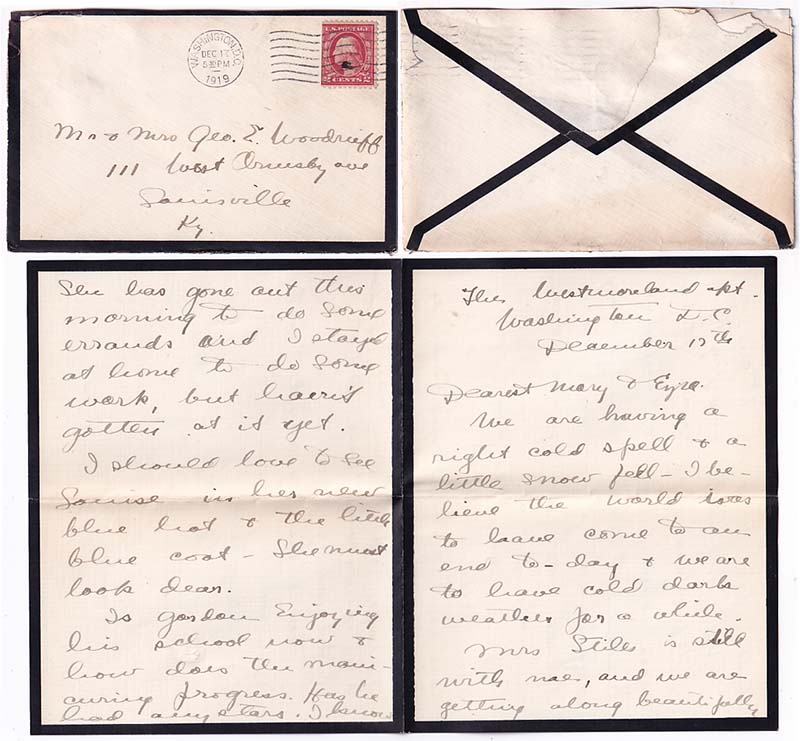 WASHINGTON, D.C.
DEC 17
5:30 PM
1919
U.S. POSTAGE
2 CENTS 2
Mr & Mrs Geo. E. Woodruff
111 West Ormsby ave
Louisville
Ky.
The Westmoreland apt.
Washington D.C.
December 17th
Dearest Mary & Ezra.
We are having a
right cold spell & a
little snow fell - I be-
lieve the world
to have come to an
end to-day & we are
to have cold dark
weather for a while.
Mrs Stiles is still
with me, and we are
getting along beautifully
She has gone out this
morning to do some
errands and I stayed
at home to do some
work, but haven't
gotten at it yet.
I should love to see
Louise in her new
blue hat & the little
blue coat - She must
look dear.
Is Gordon Enjoying
his school now &
how does the mani-
curing progress. Has he
had any stars. I know